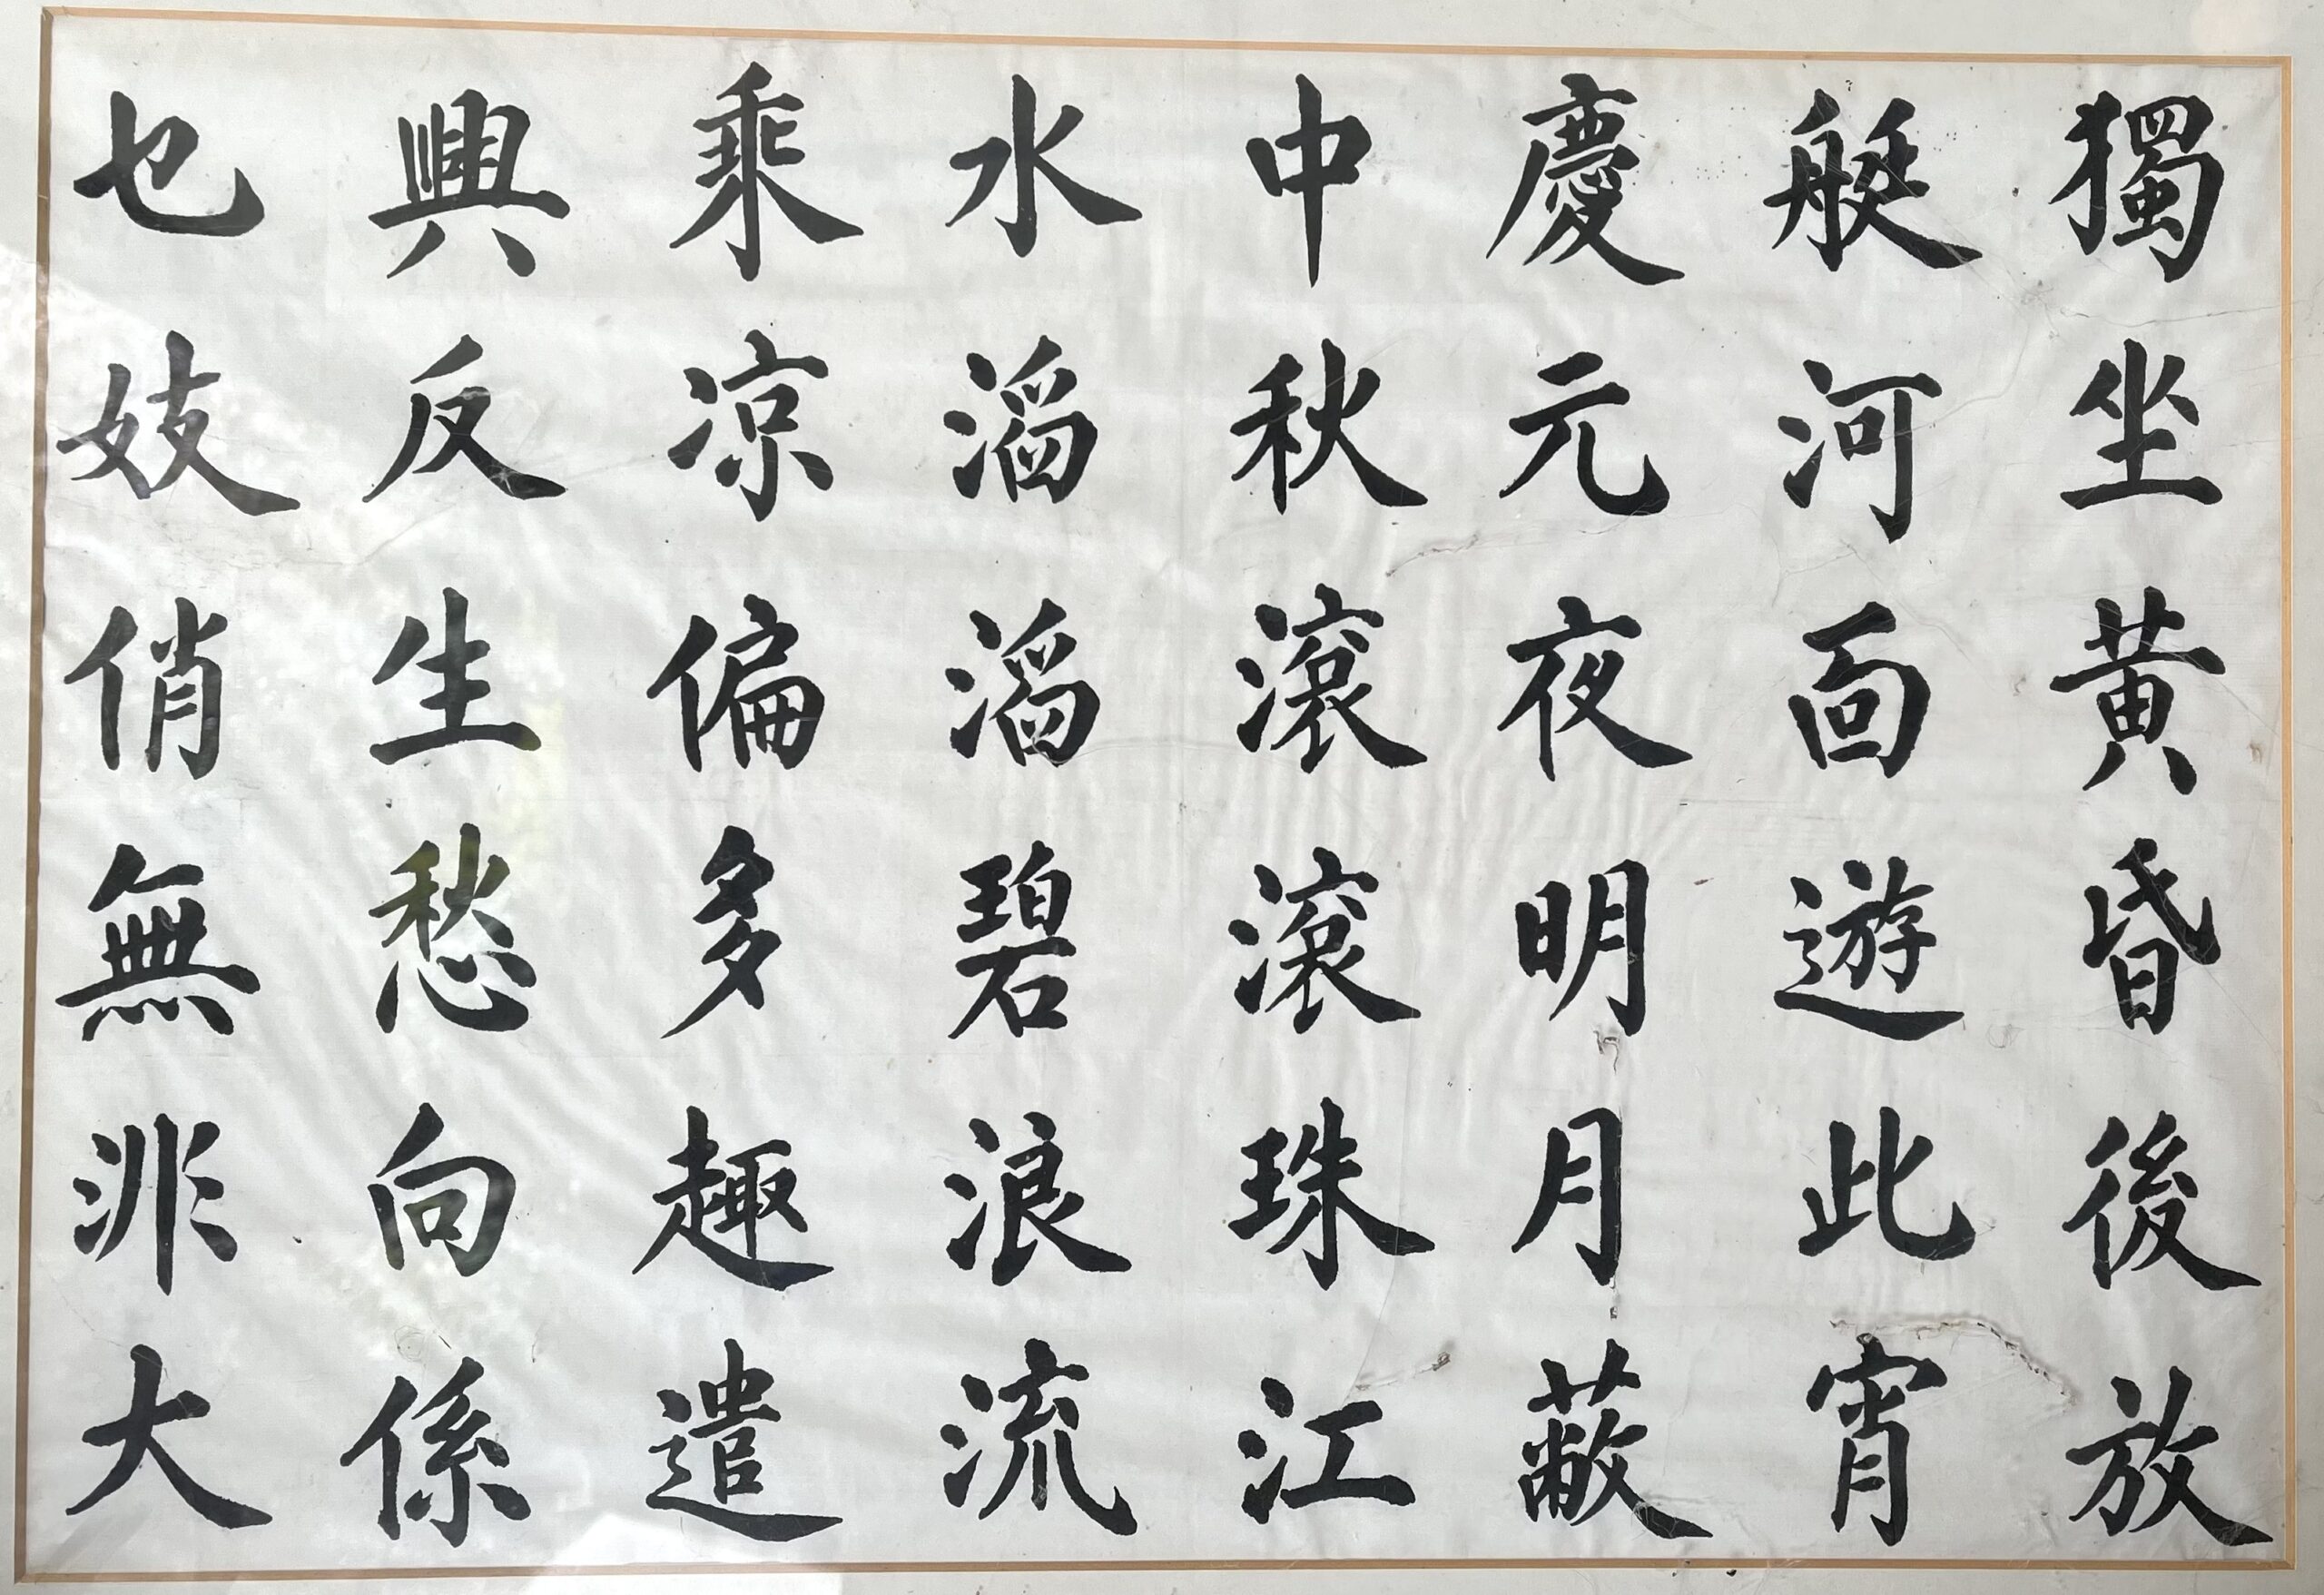 獨坐黄昏後放
艇河面遊此宵
慶元夜明月蔽
中秋滾滾珠江
水滔滔碧浪流
乘凉偏多趣遣
興反生愁向係
乜妓俏無淝大